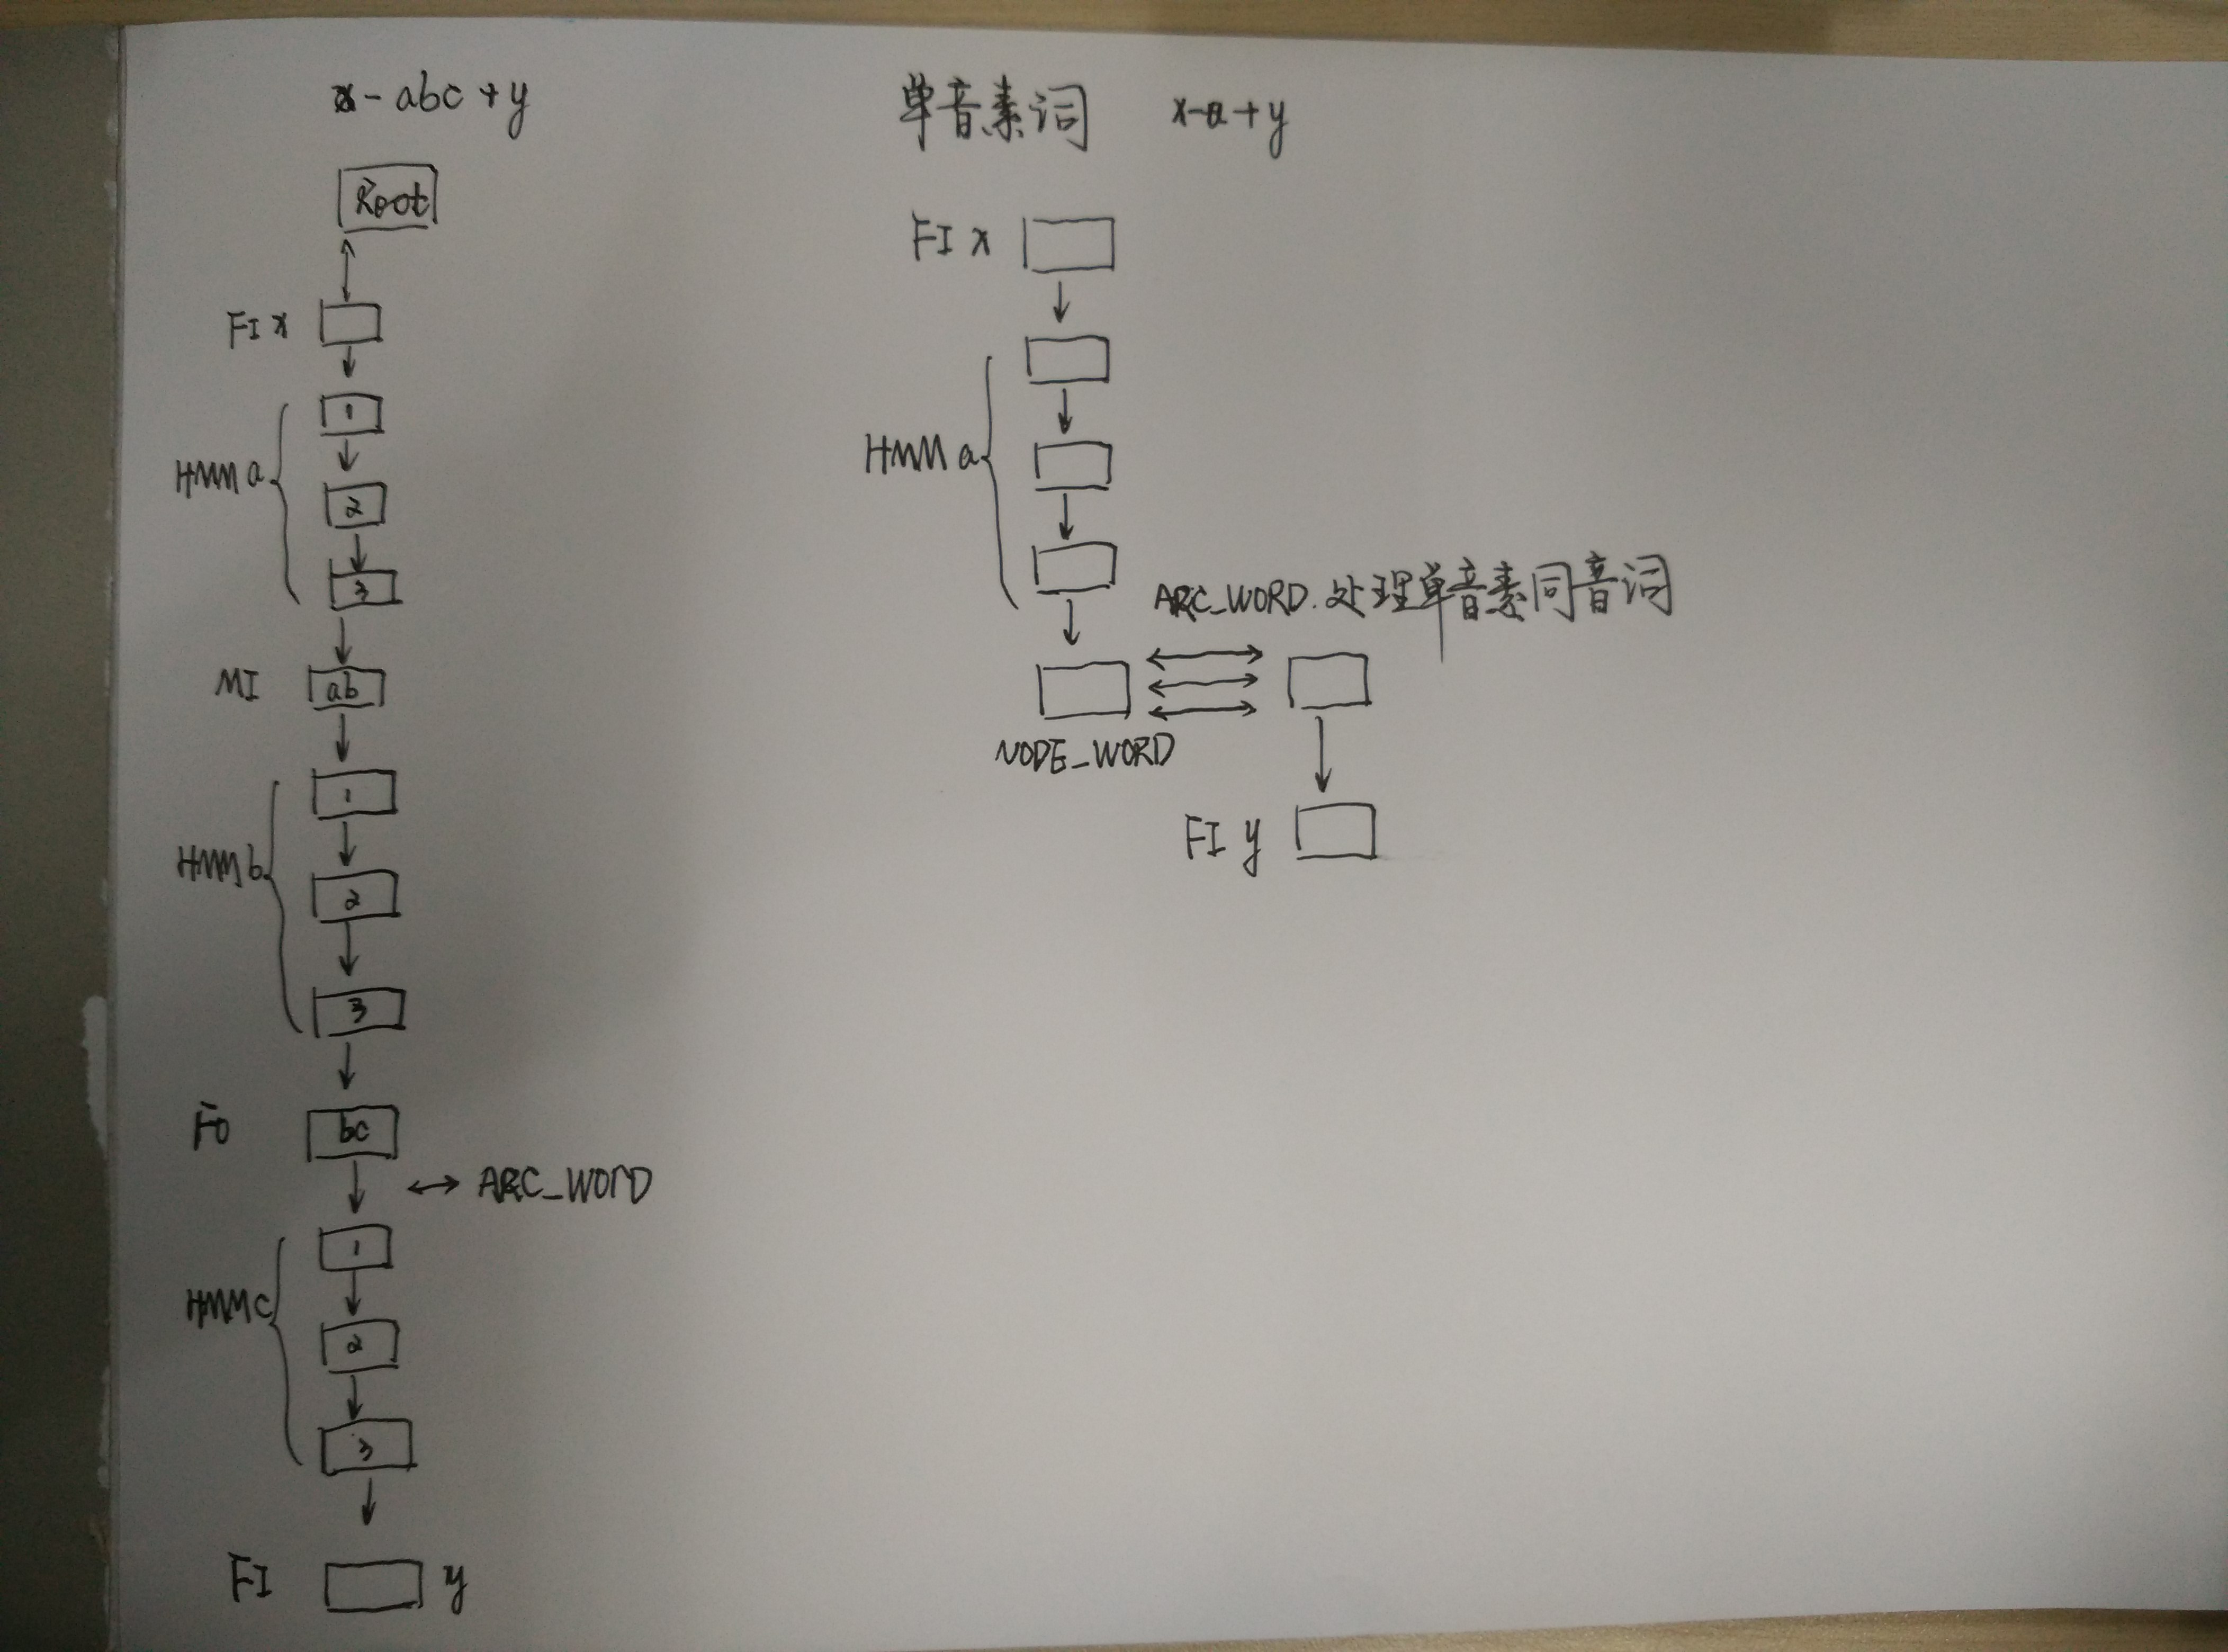 x-abc+y
Root
FI x
HMM a
1
2
3
MI
ab
HMM b
1
2
3
FO
bc
ARC_WORD
HMM c
1
2
3
FI
y
单音素词 x-a+y
FI x
HMM a
ARC_WORD.处理单音素同音词
NODE_WORD
FI y